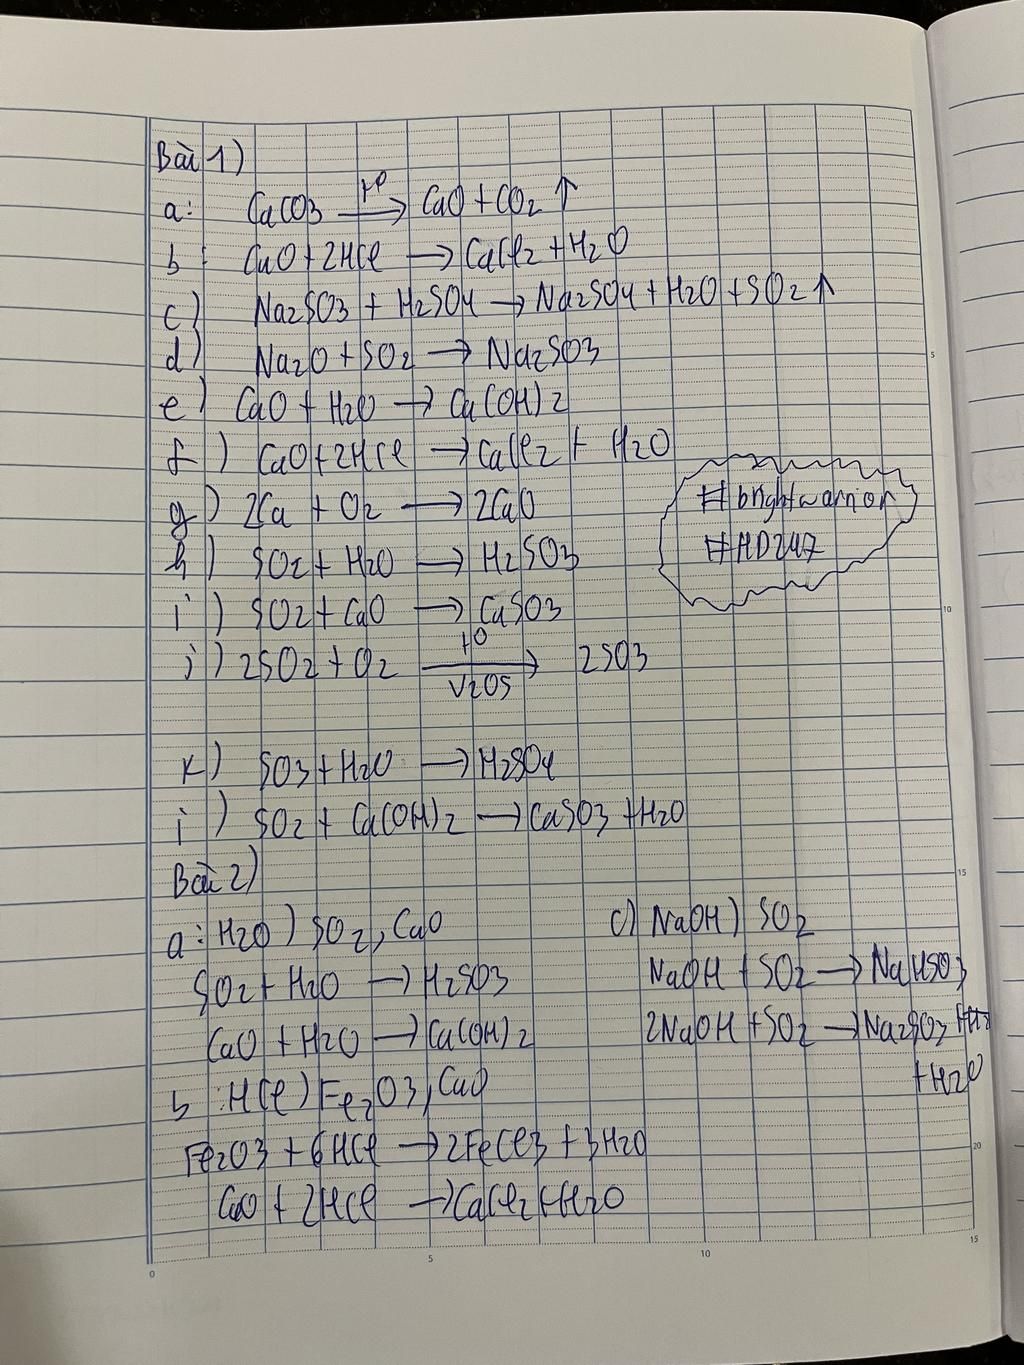 Bài 1)
a: CaCO3 t⁰→ CaO + CO2 ↑
b: CaO + 2HCl → CaCl2 + H2O
c) Na2SO3 + H2SO4 → Na2SO4 + H2O + SO2 ↑
d) Na2O + SO2 → Na2SO3
e) CaO + H2O → Ca(OH)2
f) CaO + 2HCl → CaCl2 + H2O
g) 2Ca + O2 → 2CaO
#brightwarrior
h) SO2 + H2O → H2SO3
#HD247
i) SO2 + CaO → CaSO3
j) 2SO2 + O2 t⁰→ 2SO3
V2O5
k) SO3 + H2O → H2SO4
j) SO2 + Ca(OH)2 → CaSO3 + H2O
Bài 2)
a: H2O) SO2, CaO
SO2 + H2O → H2SO3
CaO + H2O → Ca(OH)2
b: HCl) Fe2O3, CaO
Fe2O3 + 6HCl → 2FeCl3 + 3H2O
CaO + 2HCl → CaCl2 + H2O
c) NaOH) SO2
NaOH + SO2 → NaHSO3
2NaOH + SO2 → Na2SO3
+ H2O
5
10
15
20
0
5
10
15